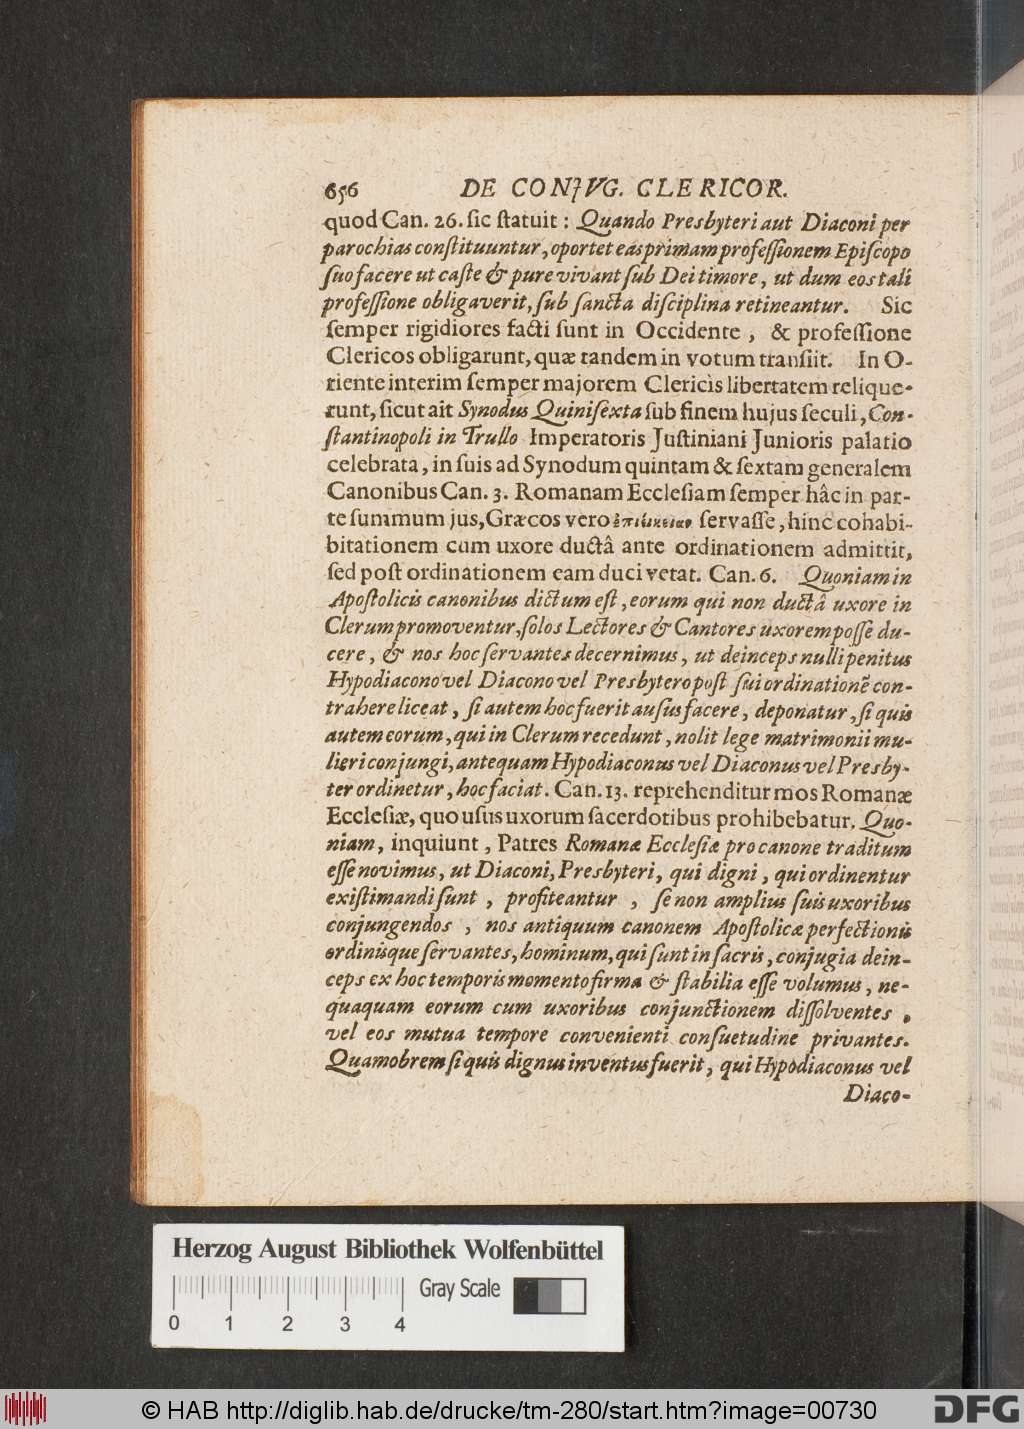 656 DE CONJVG. CLERICOR.
quod Can. 26. ſic ſtatuit : Quando Presbyteri aut Diaconi per
parochias conſtituuntur, oportet eas primam profeſſionem Epiſcopo
ſuo facere ut caſte & pure vivant ſub Dei timore, ut dum eos tali
profeſſione obligaverit, ſub ſancta diſciplina retineantur. Sic
ſemper rigidiores facti ſunt in Occidente, & profeſſione
Clericos obligarunt, quæ tandem in votum tranſiit. In O-
riente interim ſemper majorem Clericis libertatem relique-
runt, ſicut ait Synodus Quiniſexta ſub finem hujus ſeculi, Con-
ſtantinopoli in Trullo Imperatoris Juſtiniani Junioris palatio
celebrata, in ſuis ad Synodum quintam & ſextam generalem
Canonibus Can. 3. Romanam Eccleſiam ſemper hâc in par-
te ſummum jus, Græcos vero ἐπιείκειαν ſervaſſe, hinc cohabi-
bitationem cum uxore ductâ ante ordinationem admittit,
ſed poſt ordinationem eam duci vetat. Can. 6. Quoniam in
Apoſtolicis canonibus dictum eſt, eorum qui non ductâ uxore in
Clerum promoventur, ſolos Lectores & Cantores uxorem poſſe du-
cere, & nos hoc ſervantes decernimus, ut deinceps nulli penitus
Hypodiacono vel Diacono vel Presbytero poſt ſui ordinationẽ con-
trahere liceat, ſi autem hoc fuerit auſus facere, deponatur, ſi quis
autem eorum, qui in Clerum recedunt, nolit lege matrimonii mu-
lieri conjungi, antequam Hypodiaconus vel Diaconus vel Presby-
ter ordinetur, hoc faciat. Can. 13. reprehenditur mos Romanæ
Eccleſiæ, quo uſus uxorum ſacerdotibus prohibebatur. Quo-
niam, inquiunt, Patres Romanæ Eccleſiæ pro canone traditum
eſſe novimus, ut Diaconi, Presbyteri, qui digni, qui ordinentur
exiſtimandi ſunt, profiteantur, ſe non amplius ſuis uxoribus
conjungendos, nos antiquum canonem Apoſtolicæ perfectionis
ordinisque ſervantes, hominum, qui ſunt in ſacris, conjugia dein-
ceps ex hoc temporis momento firma & ſtabilia eſſe volumus, ne-
quaquam eorum cum uxoribus conjunctionem diſſolventes,
vel eos mutua tempore convenienti conſuetudine privantes.
Quamobrem ſi quis dignus inventus fuerit, qui Hypodiaconus vel
Diaco-
Herzog August Bibliothek Wolfenbüttel
Gray Scale
0 1 2 3 4
© HAB http://diglib.hab.de/drucke/tm-280/start.htm?image=00730
DFG